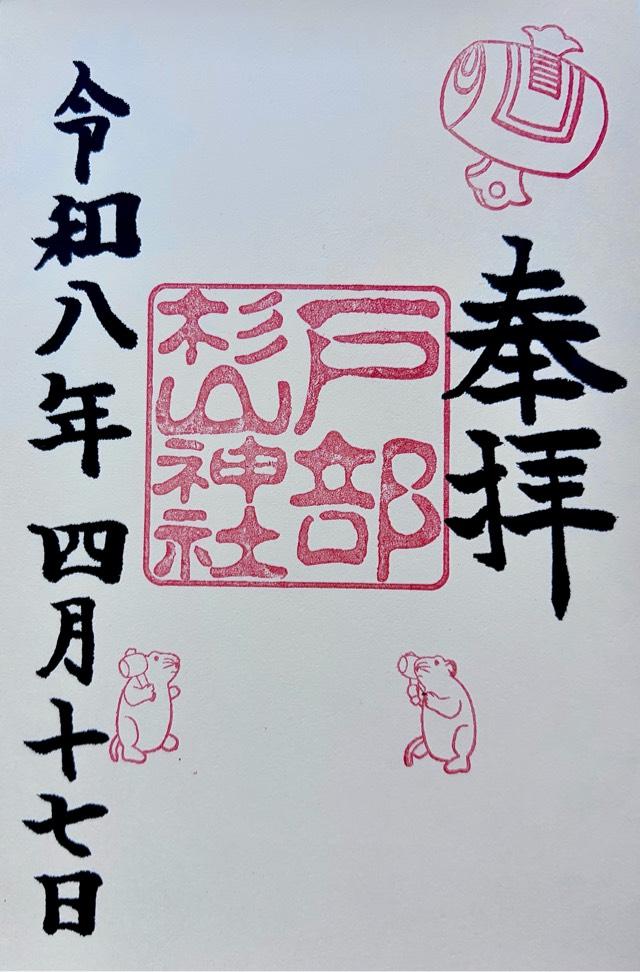 奉拝
戸部
杉山神社
令和八年 四月十七日